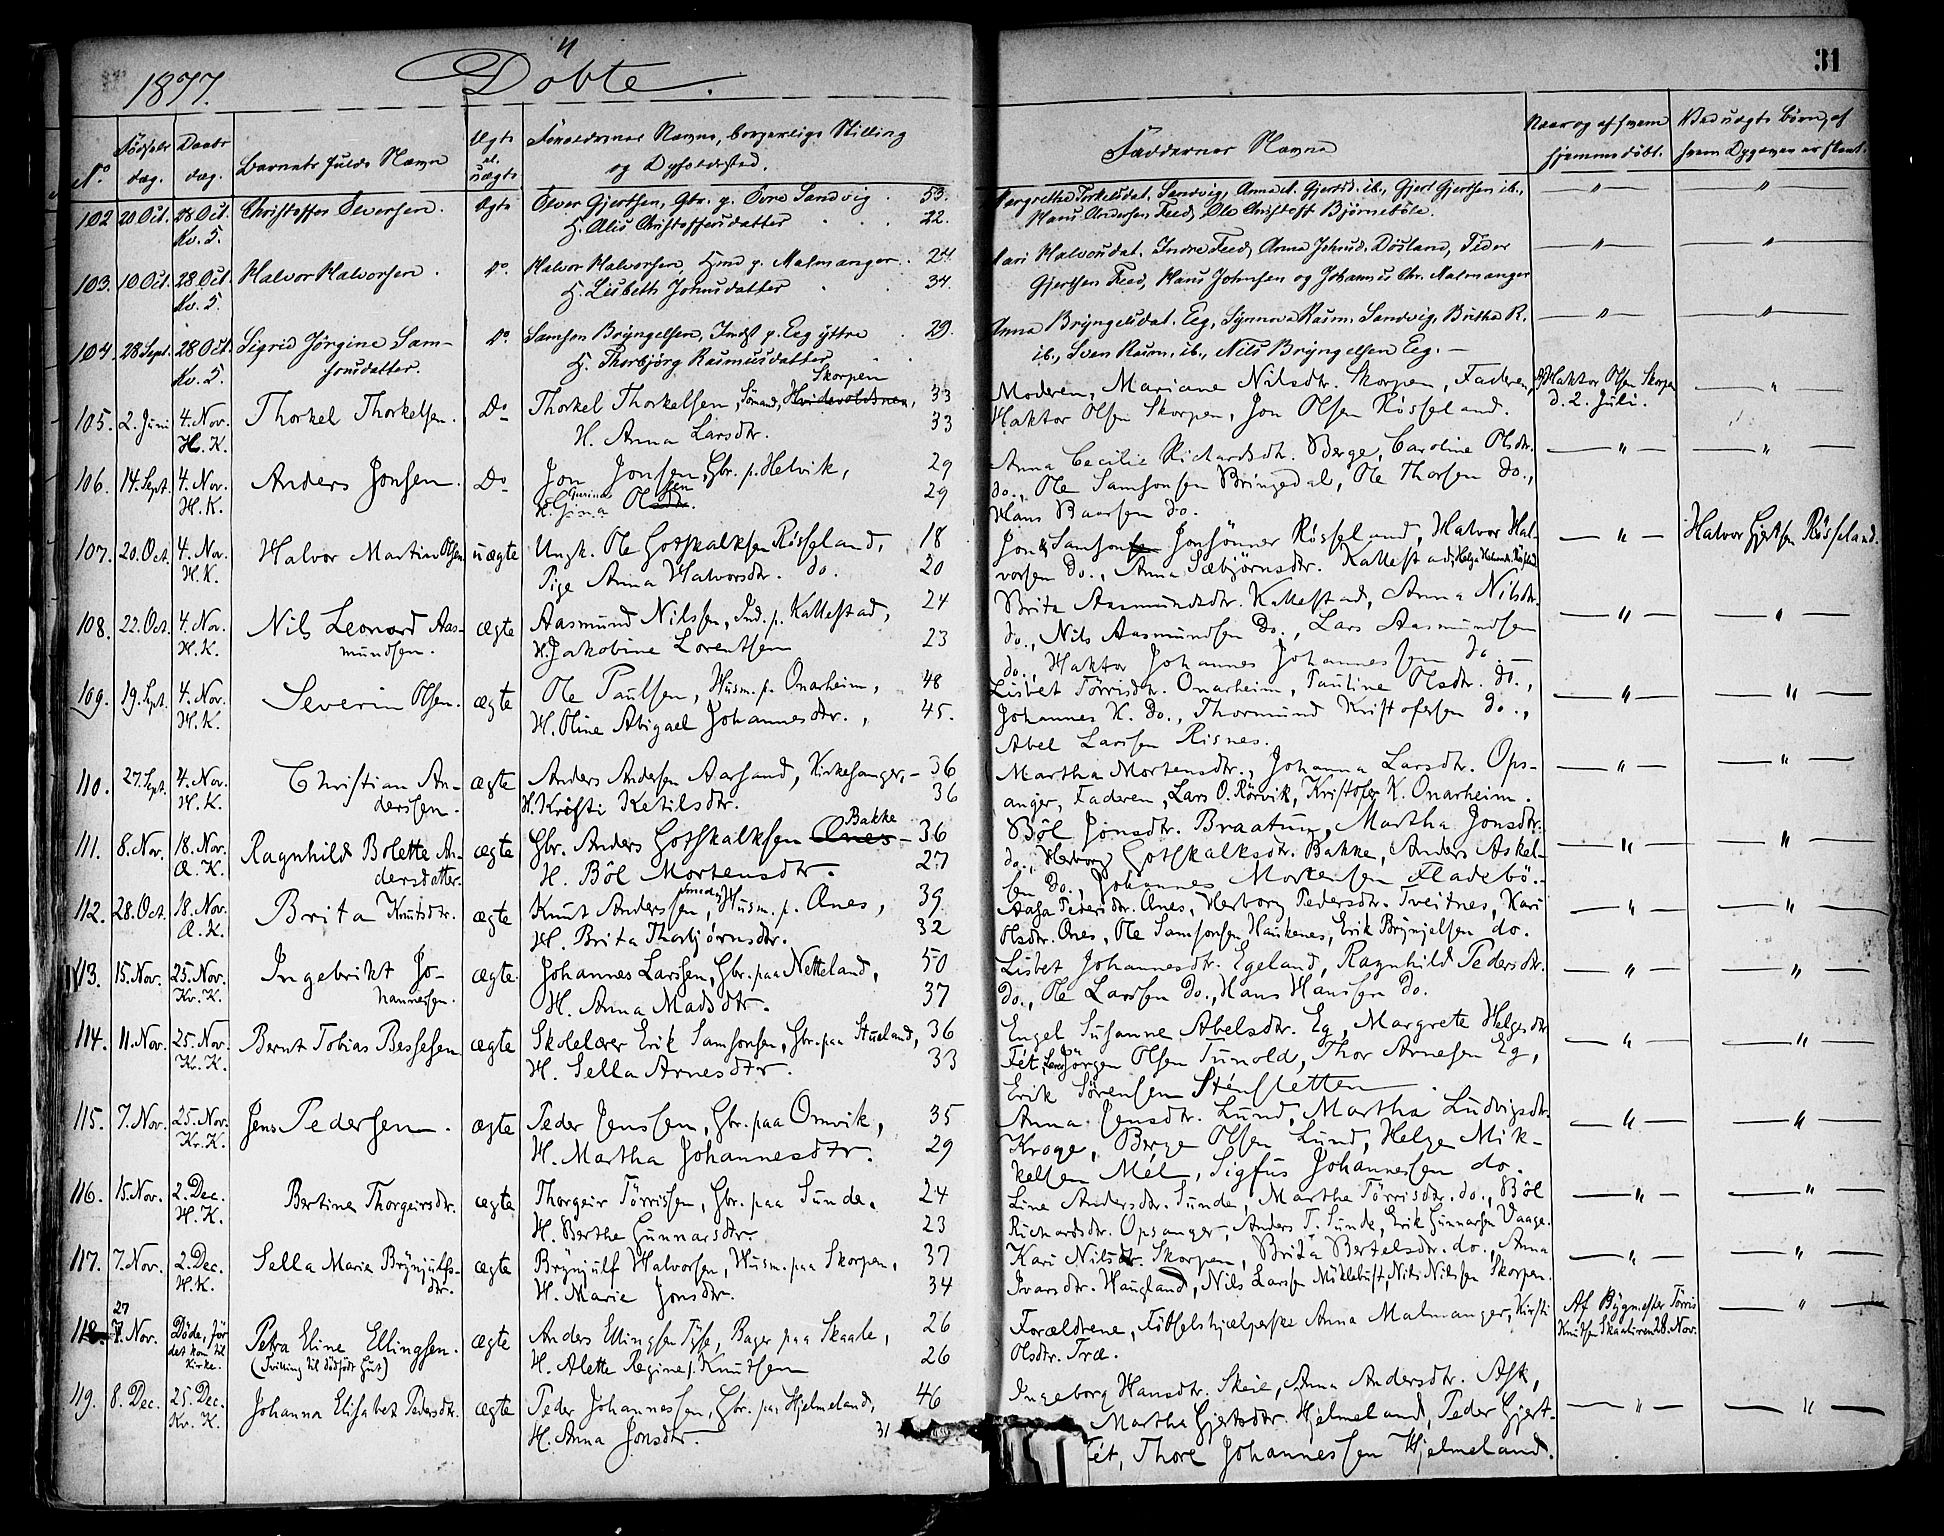 1877.
Döbte.
31
No
Fødsels
dag.
Daabs
dag.
Barnets fulde Navn
Ægte
el.
uægte
Forældrenes Navne, borgerlige Stilling
og Opholdssted.
Faddernes Navne
Naar og af hvem
hjemmedöbt.
Ved uægte Börn, af
hvem Opgaven er skeet.
102 20 Oct. 28 Oct. Christoffer Iversen. Ægte Iver Gjertsen, Gbr. p. Övre Sandvig. 53.
Kv. 5. H. Alis Christoffersdatter 22.
Margretha Torkelsdat. Sandvig, Anna M. Gjertsd. ib., Gjert Gjertsen ib.,
Hans Andersen Feed, Ole Christoff. Björnebole. — " — — " —
103. 10 Oct. 28 Oct. Halvor Halvorsen. Do. Halvor Halvorsen, Hmd p. Malmanger. 24.
Kv. 5. H. Lisbeth Johnsdatter 34.
Mari Halvorsdat. Indre Feed, Anna Johnsd. Dösland, Peder
Gjertsen Feed, Hans Johnsen og Johannes Chr. Malmanger — " — — " —
104. 28 Sept. 28 Oct. Sigrid Jörgine Sam- Do. Samson Bryngelsen, Inds. p. Eeg yttre 29.
Kv. 5. sonsdatter. H. Thorbjörg Rasmusdatter
Anna Bryngelsdat. Eeg, Synnova Rasm. Sandvig, Britha R.
ib., Sven Rasm. ib., Nils Bryngelsen Eeg. — — " — — " —
105. 2. Juni 4. Nov. Thorkel Thorkelsen. Do Thorkel Thorkelsen, Sömand, Hvidevoldsnen, Skorpen 33
H. K. H. Anna Larsdtr. 33
Moderen, Mariane Nilsdtr. Skorpen, Faderen,
Haktor Olsen Skorpen, Jon Olsen Rösseland.
Af Haktor Olsen Skorpen
d. 2. Juli. — " —
106. 14. Sept. 4. Nov. Anders Jonsen. Do Jon Jonsen, Gbr. p. Helvik, 29
H. K. H. Gina Olsen 29
Anna Cecilie Richardsdtr. Berge, Caroline Olsdtr.
do., Ole Samsonsen Bringedal, Ole Thorsen do.,
Hans Baarsen do. — " — — " —
107. 20. Oct. 4. Nov. Halvor Martin Olsen uægte Ungk. Ole Gotskalksen Rösseland, 18
H. K. Pige Anna Halvorsdtr. do. 20
Jon & Samson Jonsönner Rösseland, Halvor Hal-
vorsen do., Anna Sæbjörnsdtr. Kallestad, Helga Halvorsdtr. Rösseland — " — Halvor Gjertsen Rösseland.
108. 22. Oct. 4. Nov. Nils Leonard Aas- ægte Aasmund Nilssen, Ind. p. Kallestad, 24
H. K. mundsen. H. Jakobine Lorentsen 23
Brita Aasmundsdtr. Kallestad, Anna Nilsdtr.
do., Nils Aasmundsen do., Lars Aasmundsen
do., Haktor Johannes Johannessen do — — " — — " —
109. 19. Sept. 4. Nov. Severin Olsen. ægte Ole Paulsen, Husm. p. Onarheim, 48
H. K. H. Oline Abigael Johannesdtr., 45.
Lisbet Törrisdtr. Onarheim, Pauline Olsdtr. do.,
Johannes K. do., Thormund Kristofersen do.,
Abel Larssen Risnes. — " — — " —
110. 27. Sept. 4. Nov. Christian An- ægte Anders Andersen Aarsand, Kirkesanger, – 36
H. K. derssen. H. Kristi Ketilsdtr. 36
Martha Mortensdtr., Johanna Larsdtr. Ops-
anger, Faderen, Lars O. Rörvik, Kristofer K. Onarheim. — " — — " —
111. 8. Nov. 18. Nov. Ragnhild Bolette An- ægte Gbr. Anders Gotskalksen Ænes Bakke – 36
Æ. K. dersdatter. H. Böl Mortensdtr. 27
Böl Jonsdtr. Braatun, Martha Jonsdtr.
do., Herborg Gotskalksdtr. Bakke, Anders Askel-
sen do., Johannes Mortensen Fladebö. — " — — " —
112. 28. Oct. 18. Nov. Brita Knutsdtr. ægte Knut Anderssen, Smed, Husm. p. Ænes, 39
Æ. K. H. Brita Thorbjörnsdtr. 32
Aasa Pedersdtr. Ænes, Herborg Pedersdtr. Tveitnes, Kari
Olsdtr. Ænes, Ole Samsonsen Haukenes, Erik Brynjelsen do. — " — — " —
113. 15. Nov. 25. Nov. Ingebrikt Jo- ægte Johannes Larssen, Gbr. paa Netteland, 50
Kv. K. hannessen. H. Anna Madsdtr. 37
Lisbet Johannesdtr. Egeland, Ragnhild Pedersdtr.
do., Ole Larssen do., Hans Hanssen do. — " — — " —
114. 11. Nov. 25. Nov. Bernt Tobias Bessesen ægte Skolelærer Erik Samsonsen, Gbr. paa Stueland, 36
Kv. K. H. Sella Arnesdtr. 33
Engel Susanne Abelsdtr. Eg, Margrete Helgesdtr.
Fet, Jörgen Olsen Tunold, Thor Arnesen Eg,
Erik Sörensen Stensletten — " — — " —
115. 7. Nov. 25. Nov. Jens Pedersen. ægte Peder Jenssen, Gbr. paa Omvik, 35
Kv. K. H. Martha Johannesdtr. 29
Anna Jensdtr. Lund, Martha Ludvigsdtr.
Kroge, Berge Olsen Lund, Helge Mik-
kelsen Mel, Sigfus Johannessen do. — " — — " —
116. 15. Nov. 2. Dec. Bertine Thorgeirsdtr. ægte Thorgeir Törrissen, Gbr. paa Sunde. 24
H. K. H. Berthe Gunnarsdtr. 23
Line Andersdtr. Sunde, Martha Törrisdtr. do., Böl
Richardsdtr. Opsanger, Anders T. Sunde, Erik Gunnarsen Vaage. — " — — " —
117. 7. Nov. 2. Dec. Sella Marie Brynjulfs- ægte Brynjulf Halvorsen, Husm. paa Skorpen, 37
H. K. dtr. H. Marie Jonsdtr. 34
Kari Nilsdtr. Skorpen, Brita Bertelsdtr. do., Anna
Ivarsdtr. Haugland, Nils Larsen Myklebust, Nils Nilssen Skorpen. — " — — " —
118. 27 7. Nov. Döde, för Petra Eline Ellingsen. ægte Anders Ellingsen Tyse, Bager paa Skaale, 26
det kom til (Tvilling til dödfödt Gut) H. Alette Regine f. Knutsen 26
Kirke.
Forældrene, Födselshjælperske Anna Malmanger, Kirsti
Olsdtr. Træ.
Af Bygmester Törris
Knutsen Skaaluren 28. Nov. — " —
119. 8. Dec. 25. Dec. Johanna Elisabet Pedersdtr. ægte Peder Johannessen, Gbr. paa Hjelmeland, 46
Kv. K. H. Anna Jonsdtr. 31
Ingeborg Hansdtr. Skeie, Anna Andersdtr. Ask,
Martha Gjertsdtr. Hjelmeland, Peder Gjert-
Fet, Thore Johannessen Hjelmeland. — " — — " —